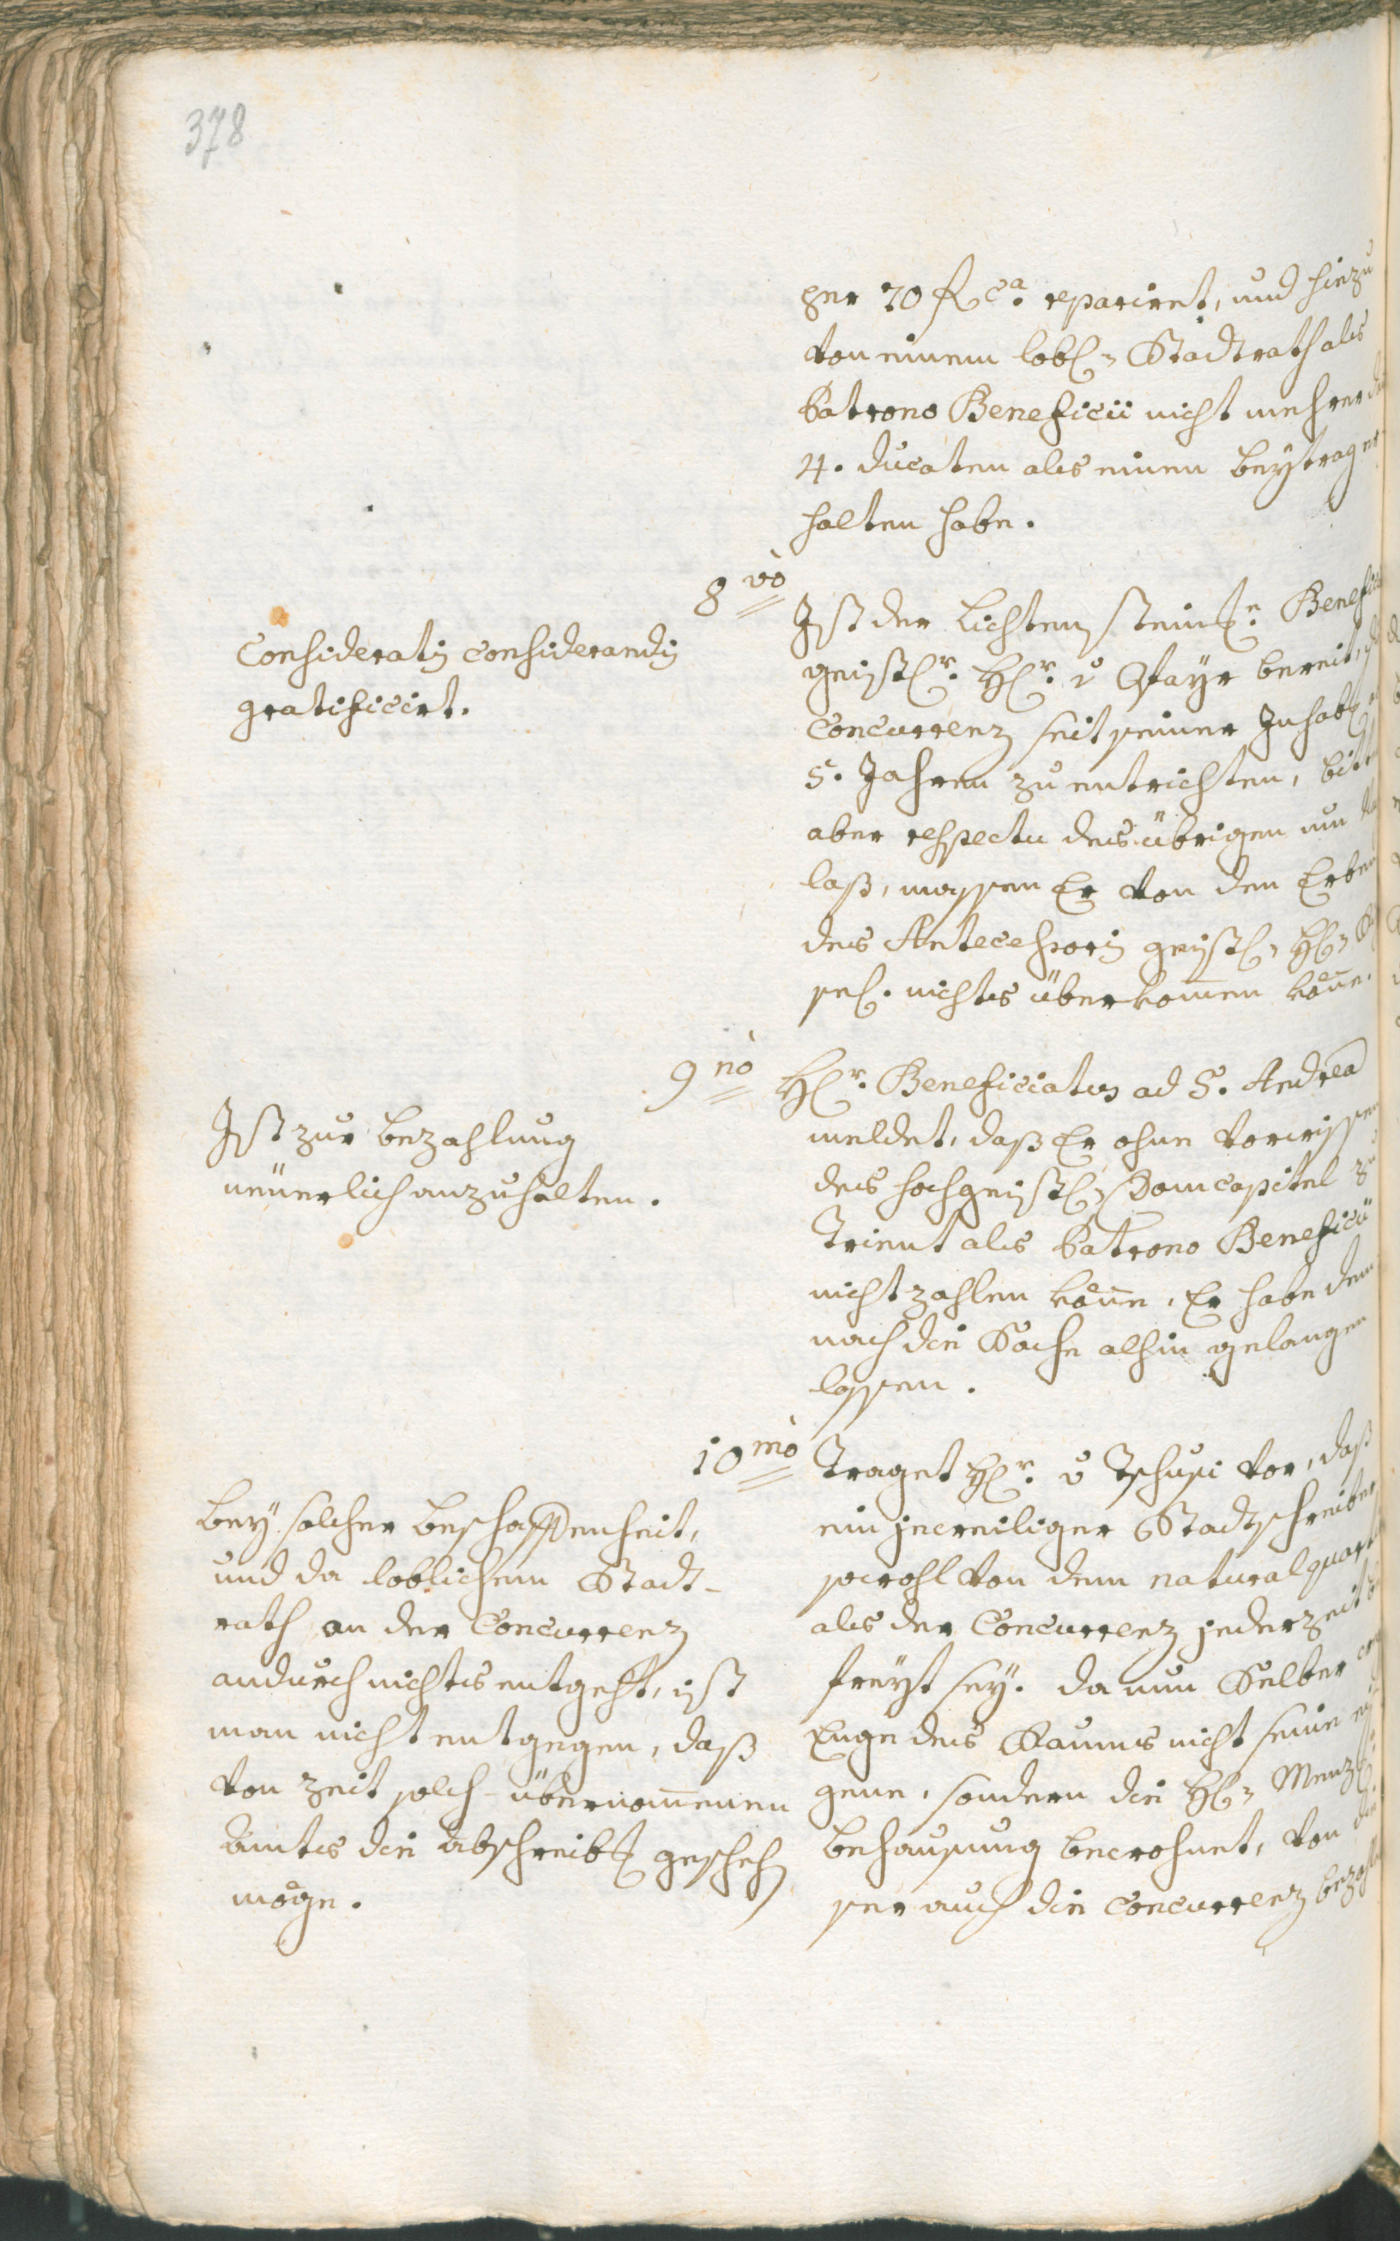 378
per 70 f ca. repariret, und hiezu
von einem lobl: Stadtrath als
Patrono Beneficii nicht mehrer
4. ducaten als einen beytrag er
halten habe.
8vo
Ist der Lichtenstein: Benefic
geistlr. Hr. v Mayr bereit,
Concurrenz seit seiner Inhab
5. Jahren zu entrichten, bitte
aber respectu des übrigen um
laß, massen Er von den Erben
des Antecessoris geistl: H:
sel. nichts überkommen könne.
Consideratis considerandis
gratificirt.
9no Hr. Beneficiatus ad S. Andrea
meldet, daß Er ohne vorwissen
des hochgeistl: Domcapitel zu
Trient als Patrono Beneficii
nicht zahlen könne, Er habe dem
nach die Sache alhin gelangen
lassen.
Ist zur bezahlung
neüerlich anzuhalten.
10mo Traget Hr. v Tschusi vor, daß
ein jeweiliger Stadtschreiber
sowohl von dem naturalquart
als der Concurrenz jederzeit
freyt sey. da nun Selber
Enge des Raums nicht seine ei
gene, sondern die H: Menz
behausung bewohnet, von
ser auch die Concurrenz bezahl
bey solcher beschaffenheit,
und da loblichem Stadt-
rath an der Concurrenz
andurch nichts entgeht, ist
man nicht entgegen, daß
von Zeit solch-übernommenen
Amts die abschreib: gescheh
möge.